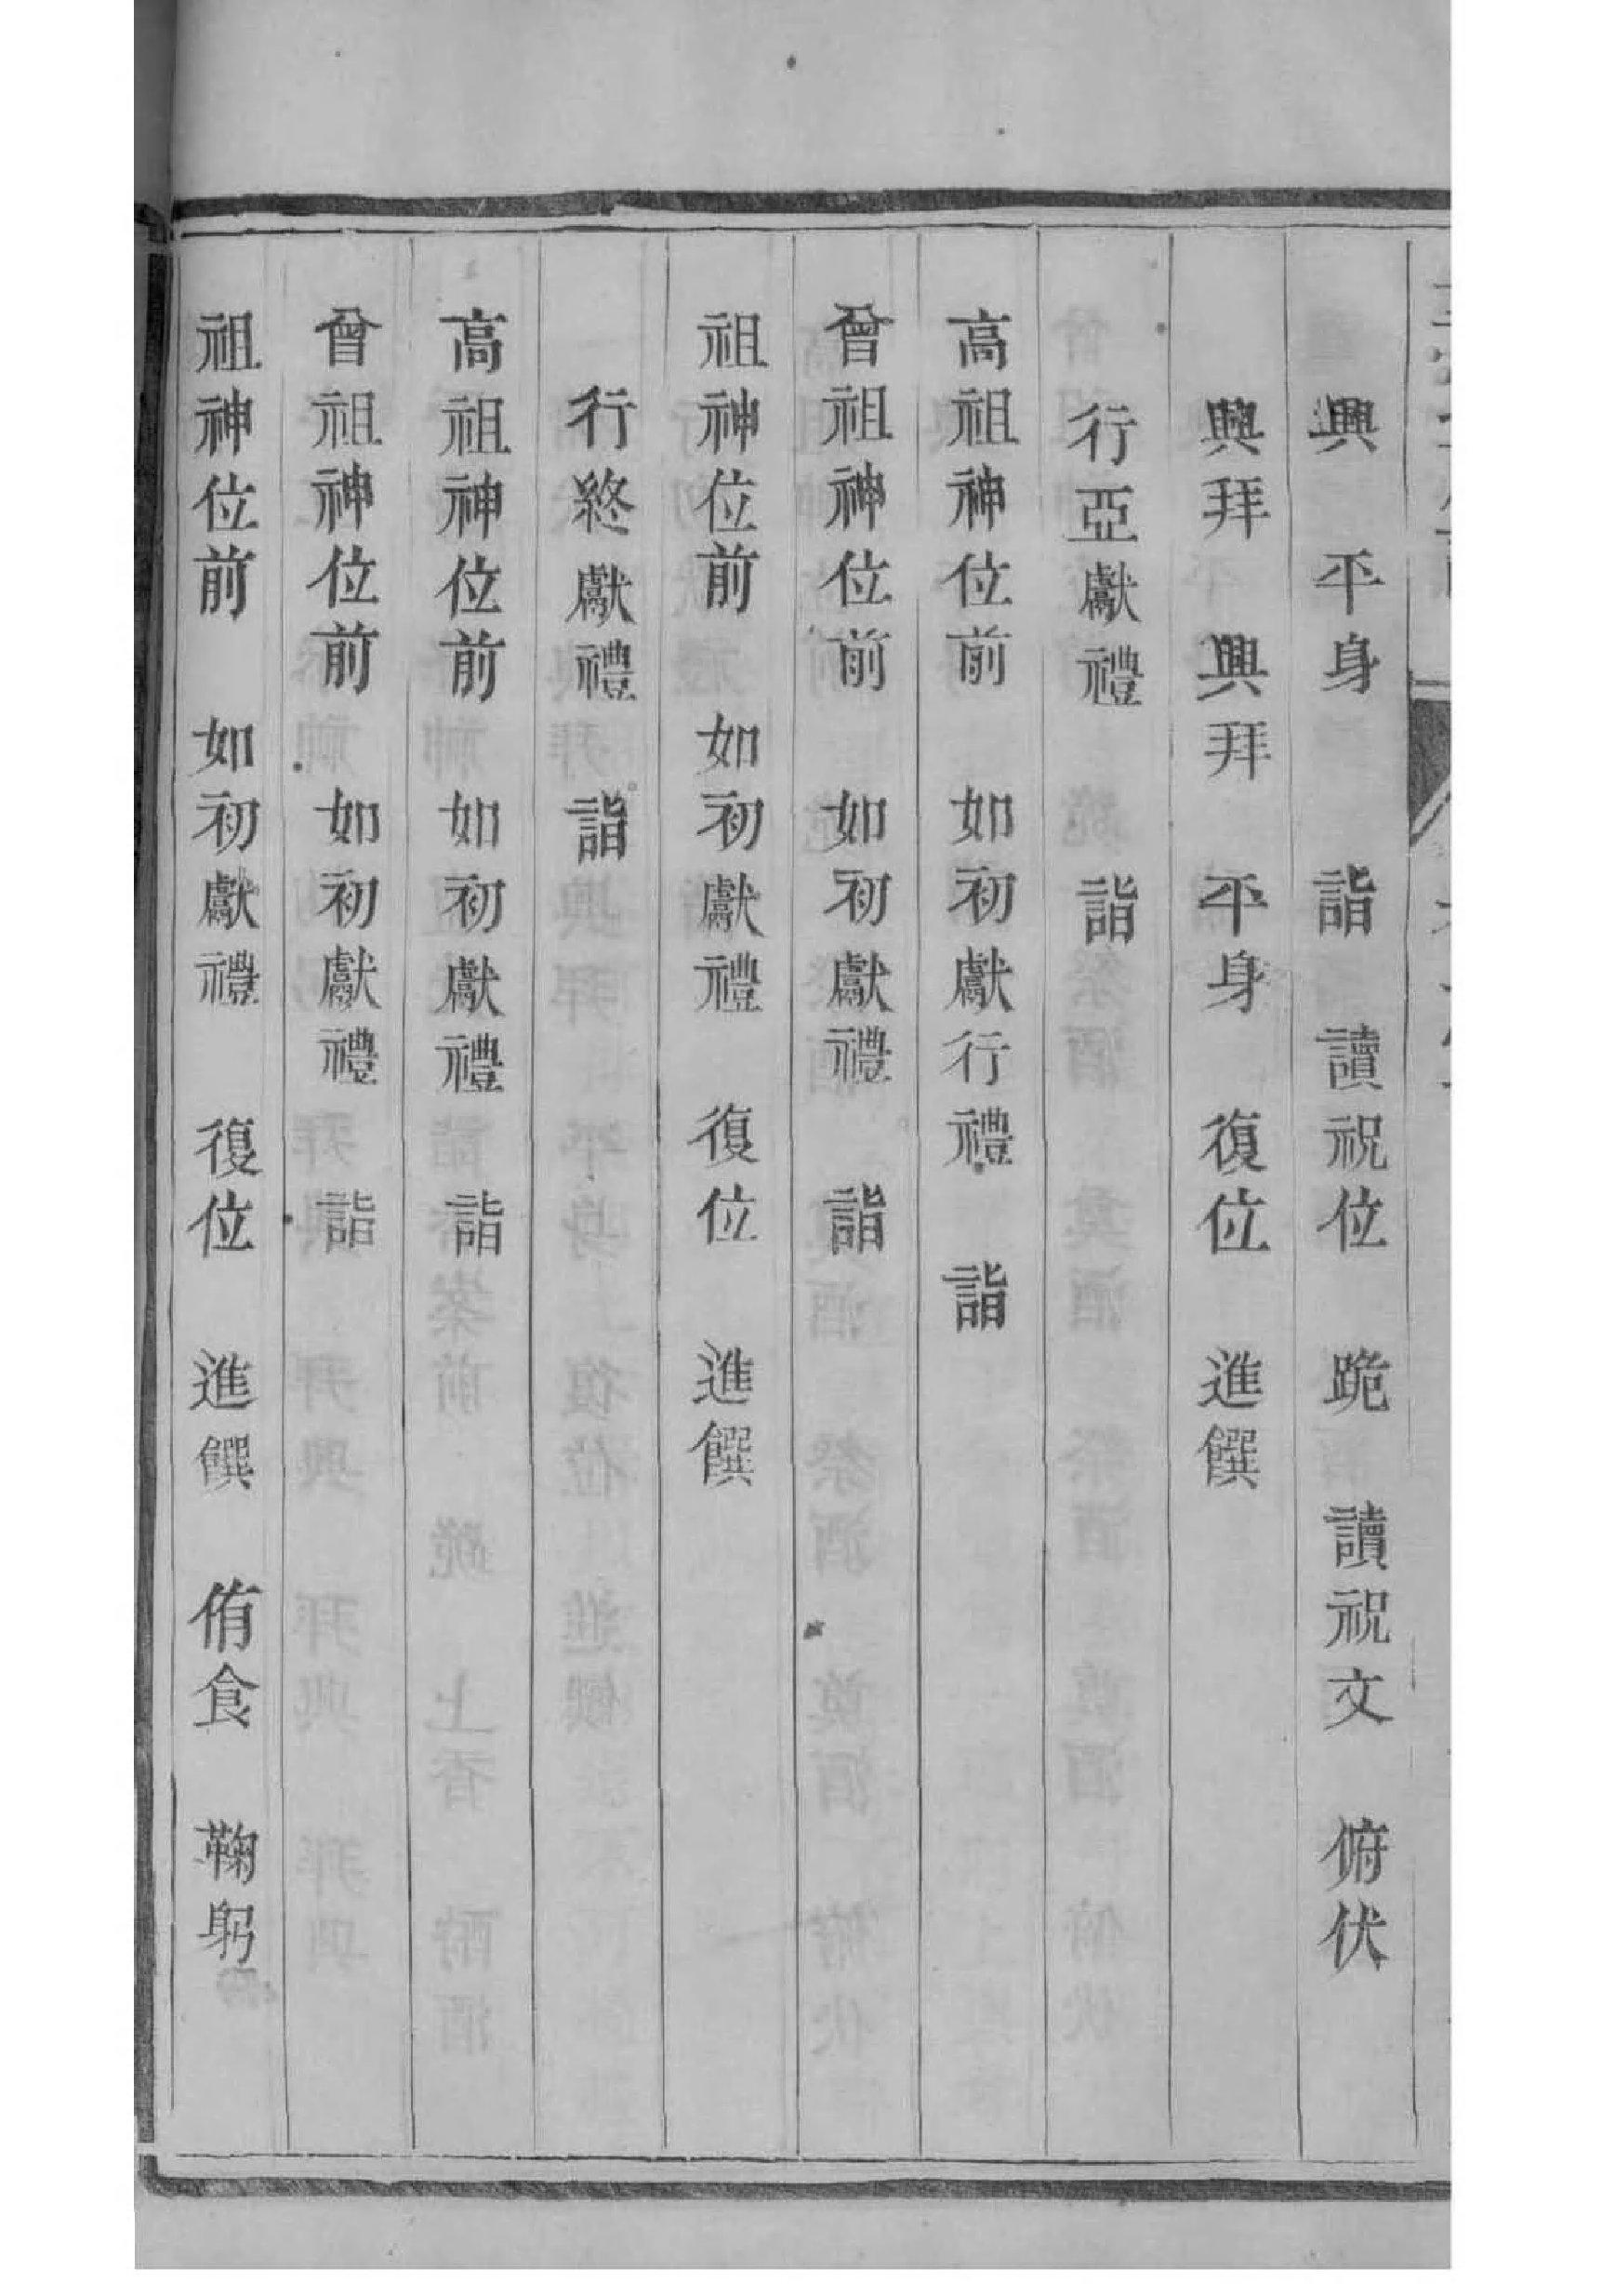 興　平身　　詣　讀祝位　跪　讀祝文　俯伏
興拜　興拜　平身　復位　進饌
行亞獻禮　　詣
高祖神位前　如初獻行禮　詣
曾祖神位前　如初獻禮　詣
祖神位前　如初獻禮　復位　進饌
行終獻禮　詣
高祖神位前　如初獻禮　詣
曾祖神位前　如初獻禮　詣
祖神位前　如初獻禮　復位　進饌　侑食　鞠躬